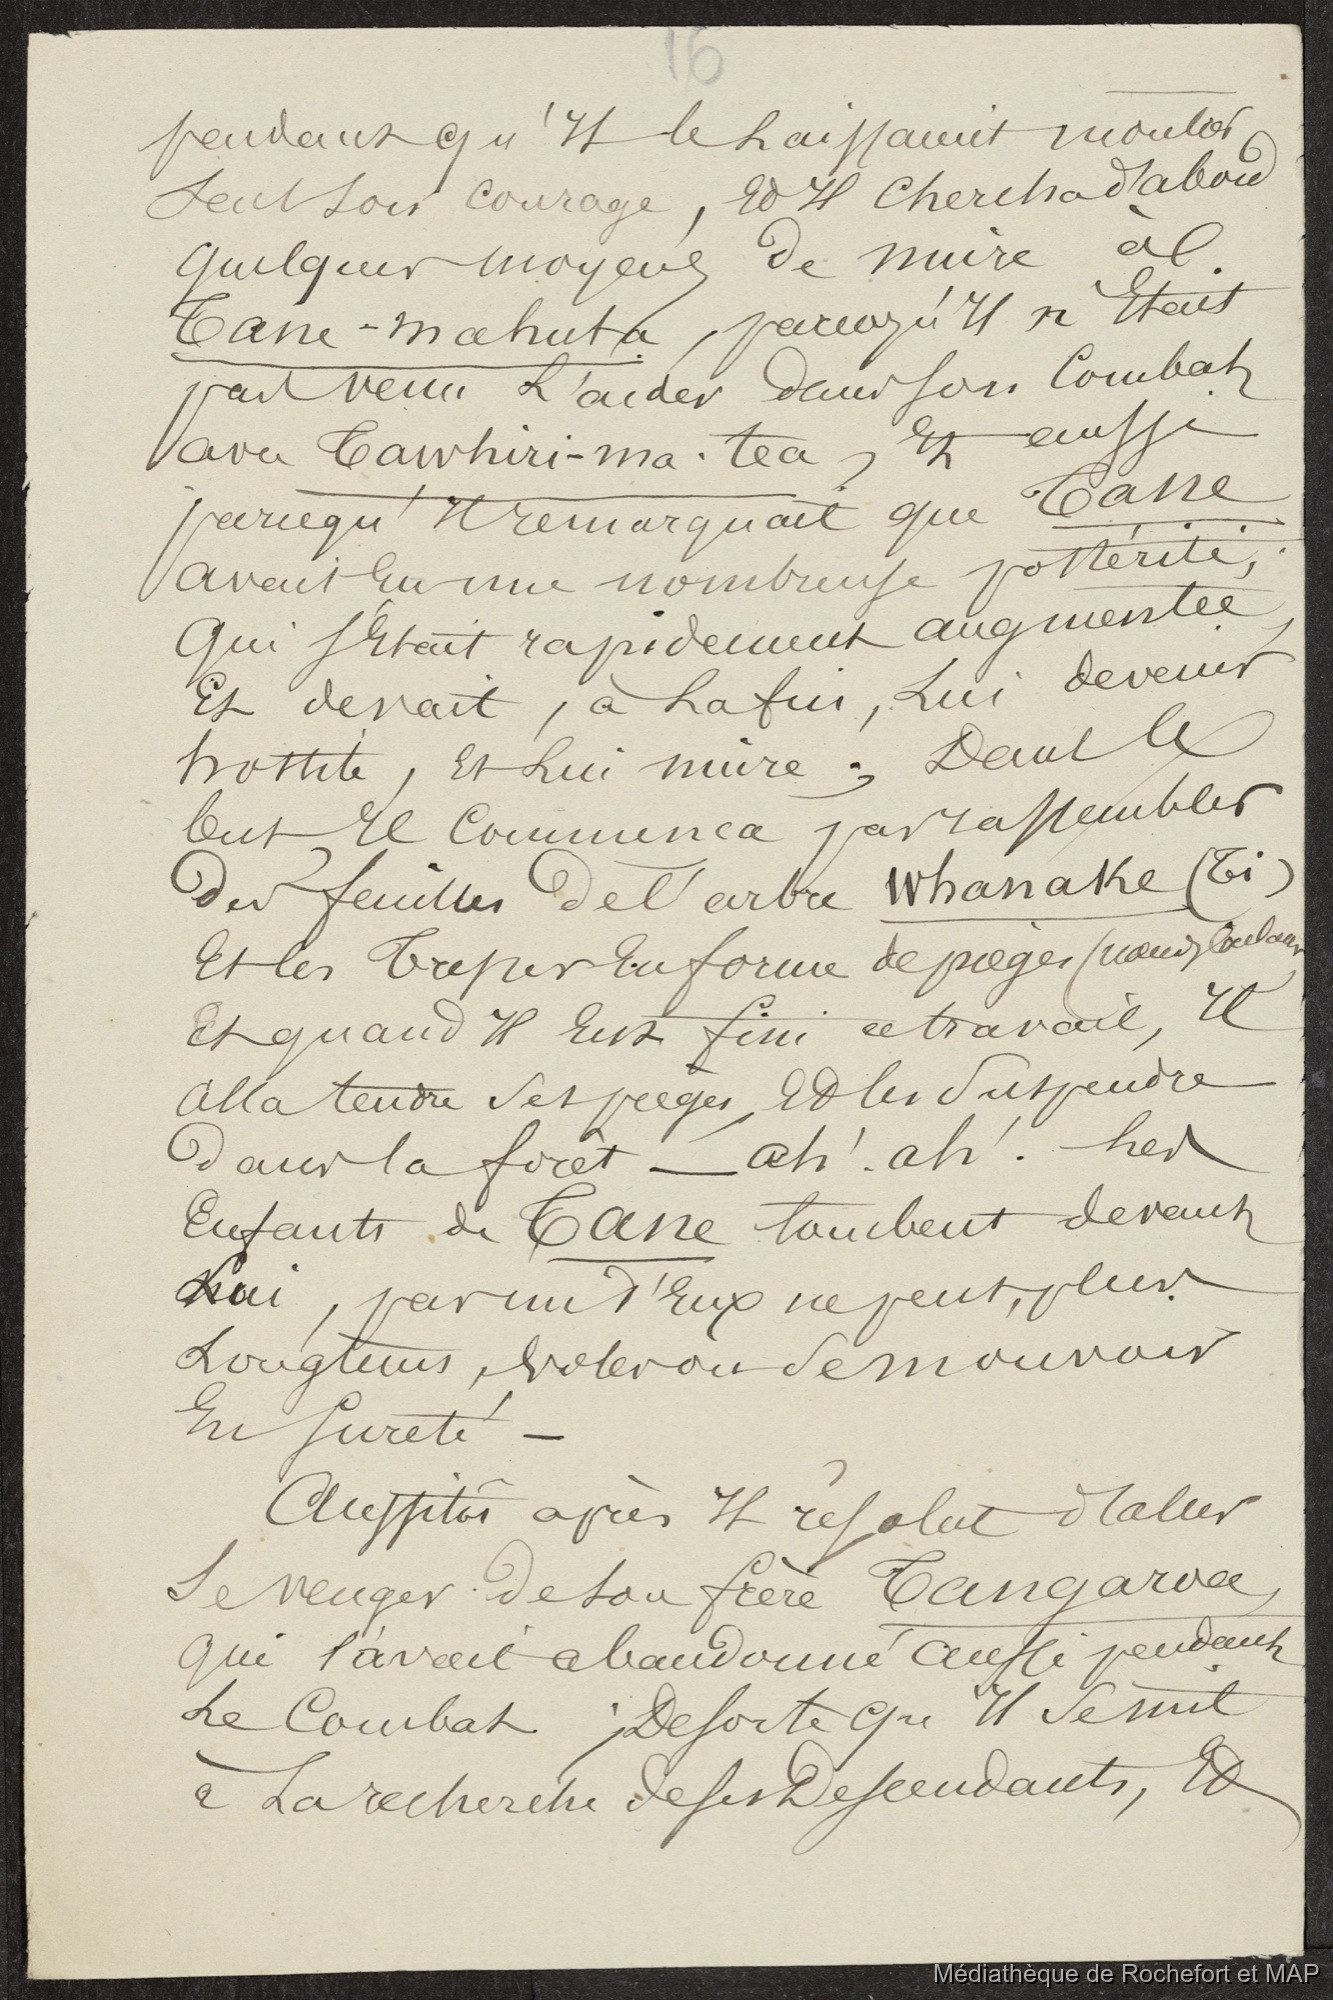 16
pendant qu'Il le laissaient montrer
seul son courage, Et Il chercha d'abord
quelques moyens de nuire à
Tane-mahuta, parcequ'Il n'Etait
pas venu L'aider dans son Combat
avec Tawhiri-ma-tea, Et aussi
parcequ'Il remarquait que Tane
avait Eu une nombreuse postérité,
qui s'Etait rapidement augmentée,
Et devait, à La fin, Lui devenir
hostile, Et Lui nuire; Dans ce
but Il commenca par rassembler
Des feuilles De l'arbre Whanake (Ti)
Et les Tresser En forme de pièges (nœuds coulants)
Et quand Il Eut fini ce travail, Il
alla tendre Ses pièges, Et les Suspendre
Dans la forêt — ah! ah! Les
Enfants de Tane tombent devant
Lui, pas un d'Eux ne peut, plus
Longtems, voler ou Se mouvoir
En Sureté —
Aussitôt après Il résolut d'aller
Se venger De Son frère Tangaroa,
qui l'avait abandonné aussi pendant
Le Combat; De sorte que Il Se mit
à La recherche de ses Descendants, Et
Médiathèque de Rochefort et MAP